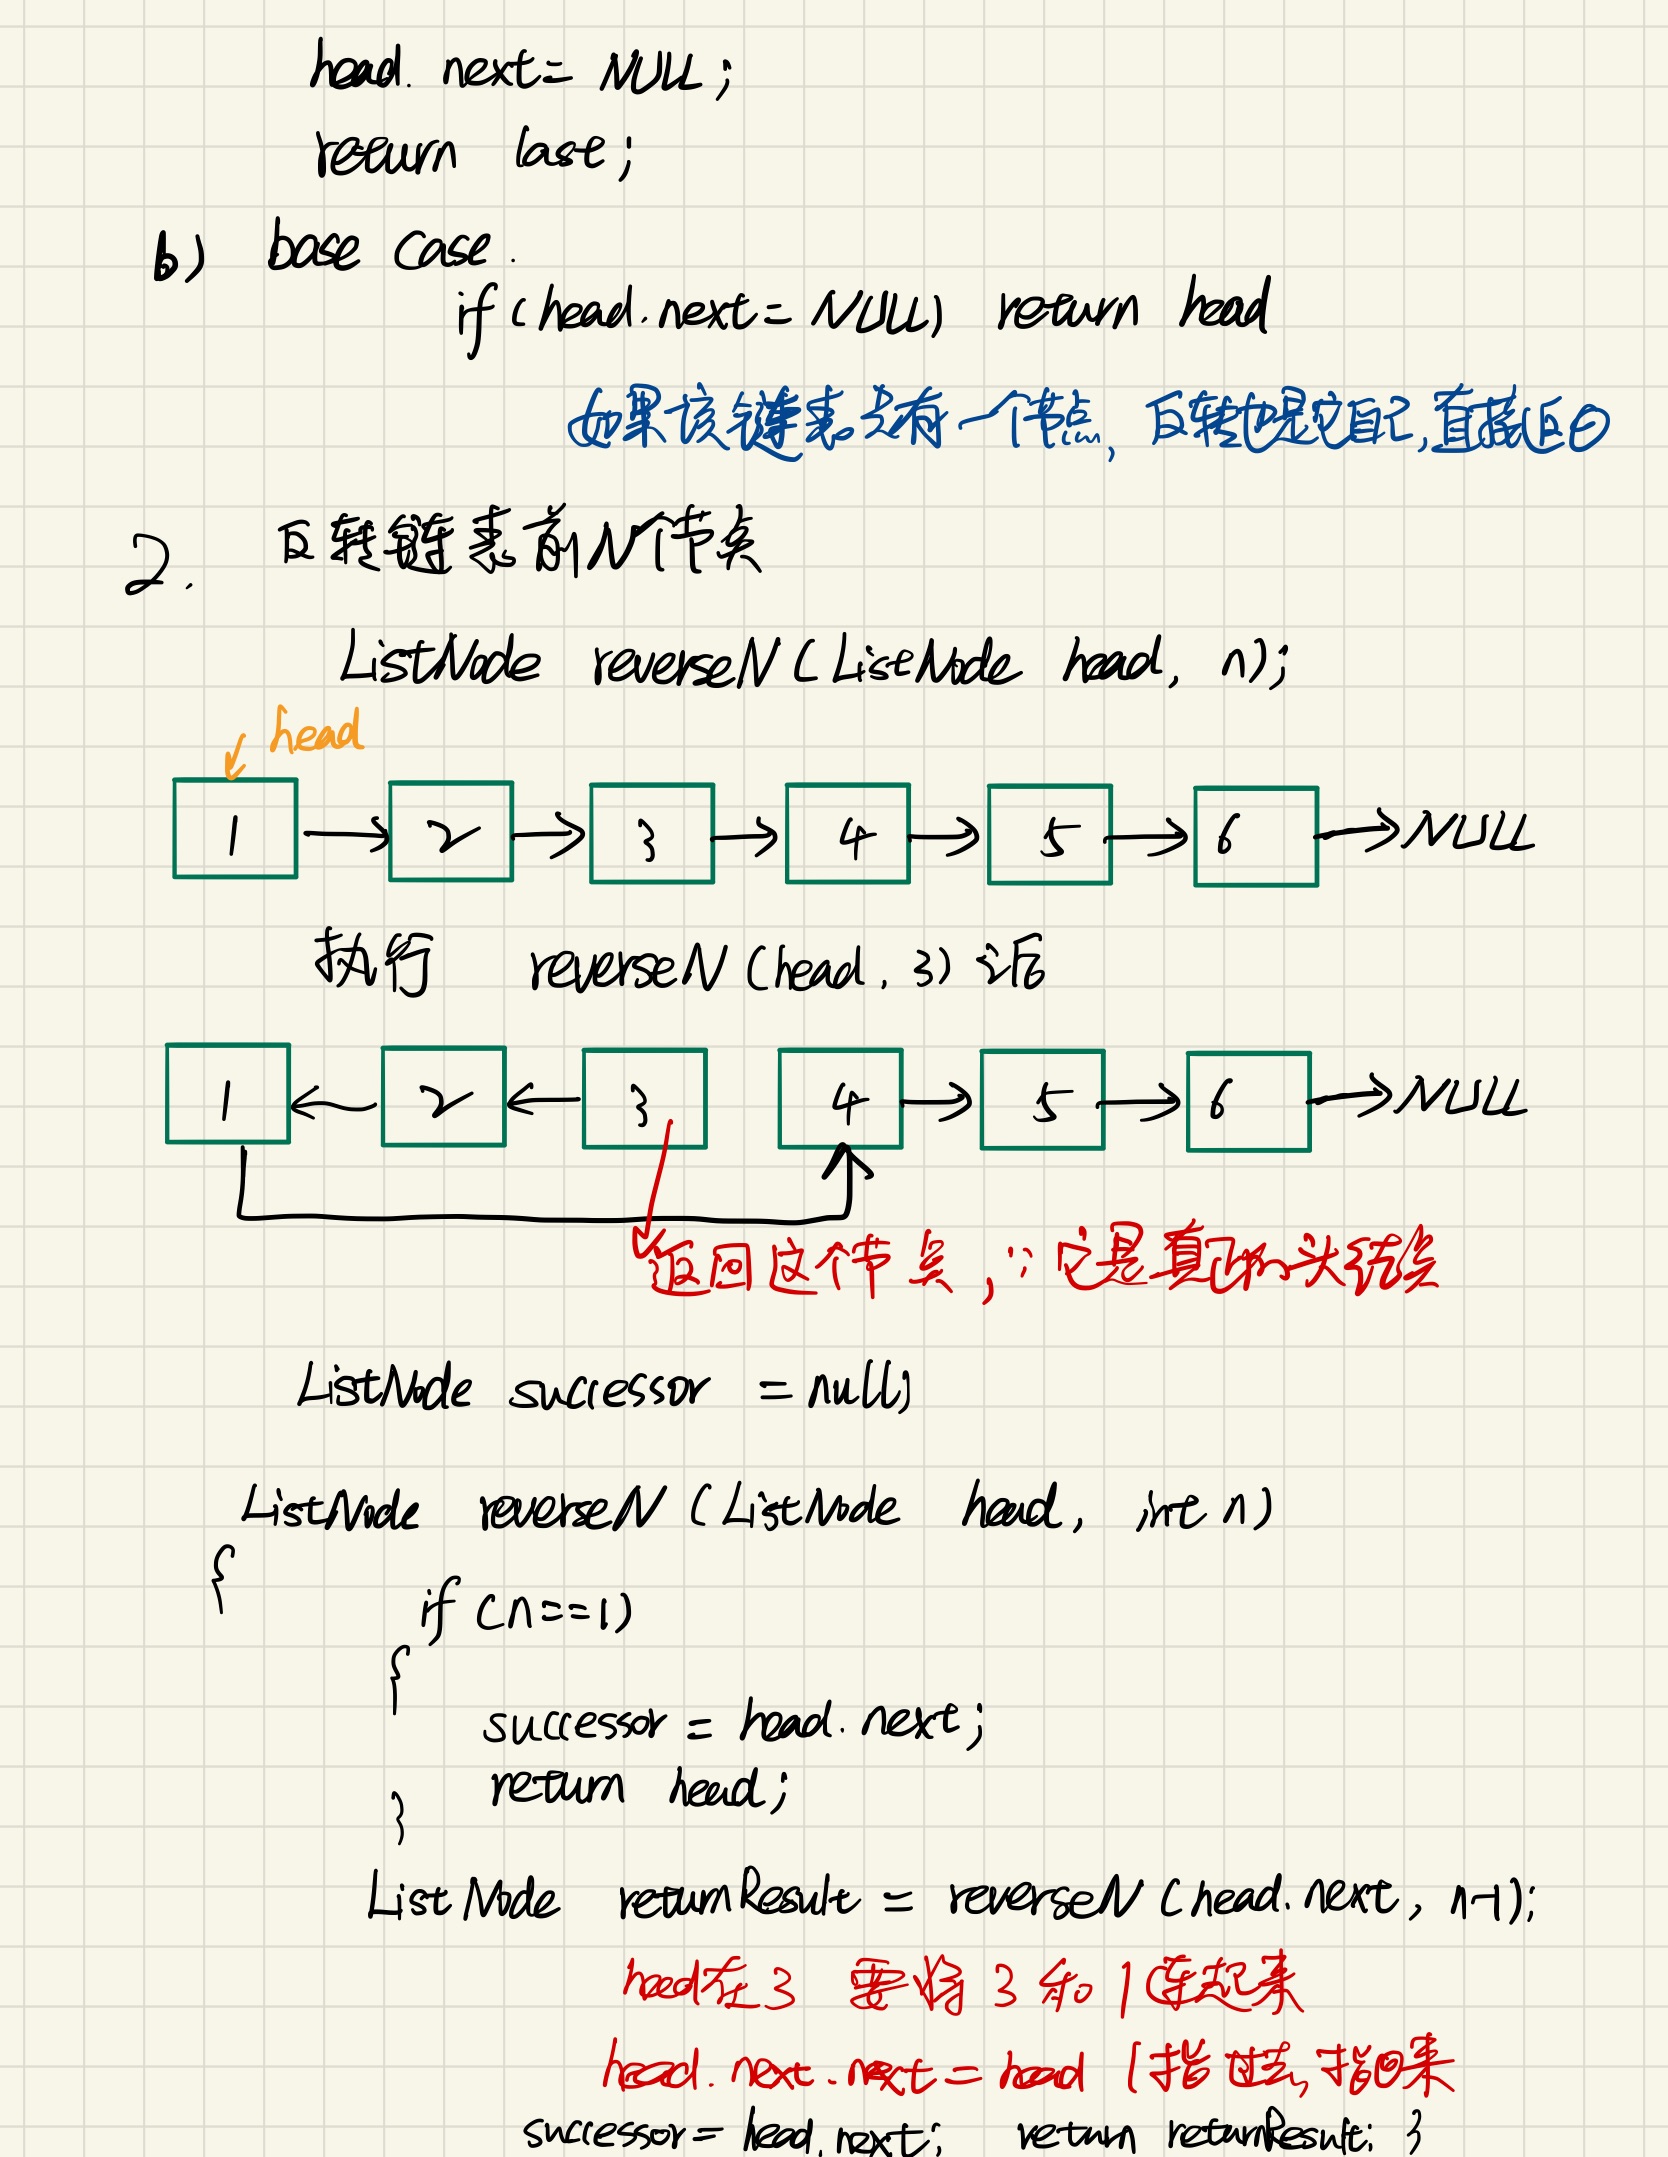 head. next = NULL;
return last;
b) base case.
if (head.next = NULL) return head
如果该链表只有一个节点, 反转也是它自己,直接返回
2. 反转链表前N个节点
ListNode reverseN (ListNode head, n);
head
1 2 3 4 5 6 NULL
执行 reverseN (head, 3) 之后
1 2 3 4 5 6 NULL
返回这个节点, ∵它是真正的头结点
ListNode successor = null;
ListNode reverseN (ListNode head, int n)
{
if (n==1)
{
successor = head.next;
return head;
}
ListNode returnResult = reverseN (head.next, n-1);
head在3 要将3和1连起来
head.next.next = head 1指过去, 指回来
successor = head.next; return returnResult; }